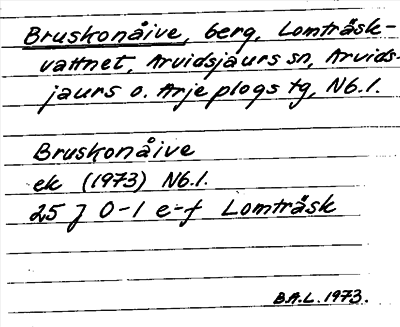 Bruskonåive, berg, Lomträsk-
vattnet, Arvidsjaurs sn, Arvids-
jaurs o. Arjeplogs tg, Nb.l.
Bruskonåive
ek (1973) Nb.l.
25 J 0-1 e-f Lomträsk
B.A.L. 1973.